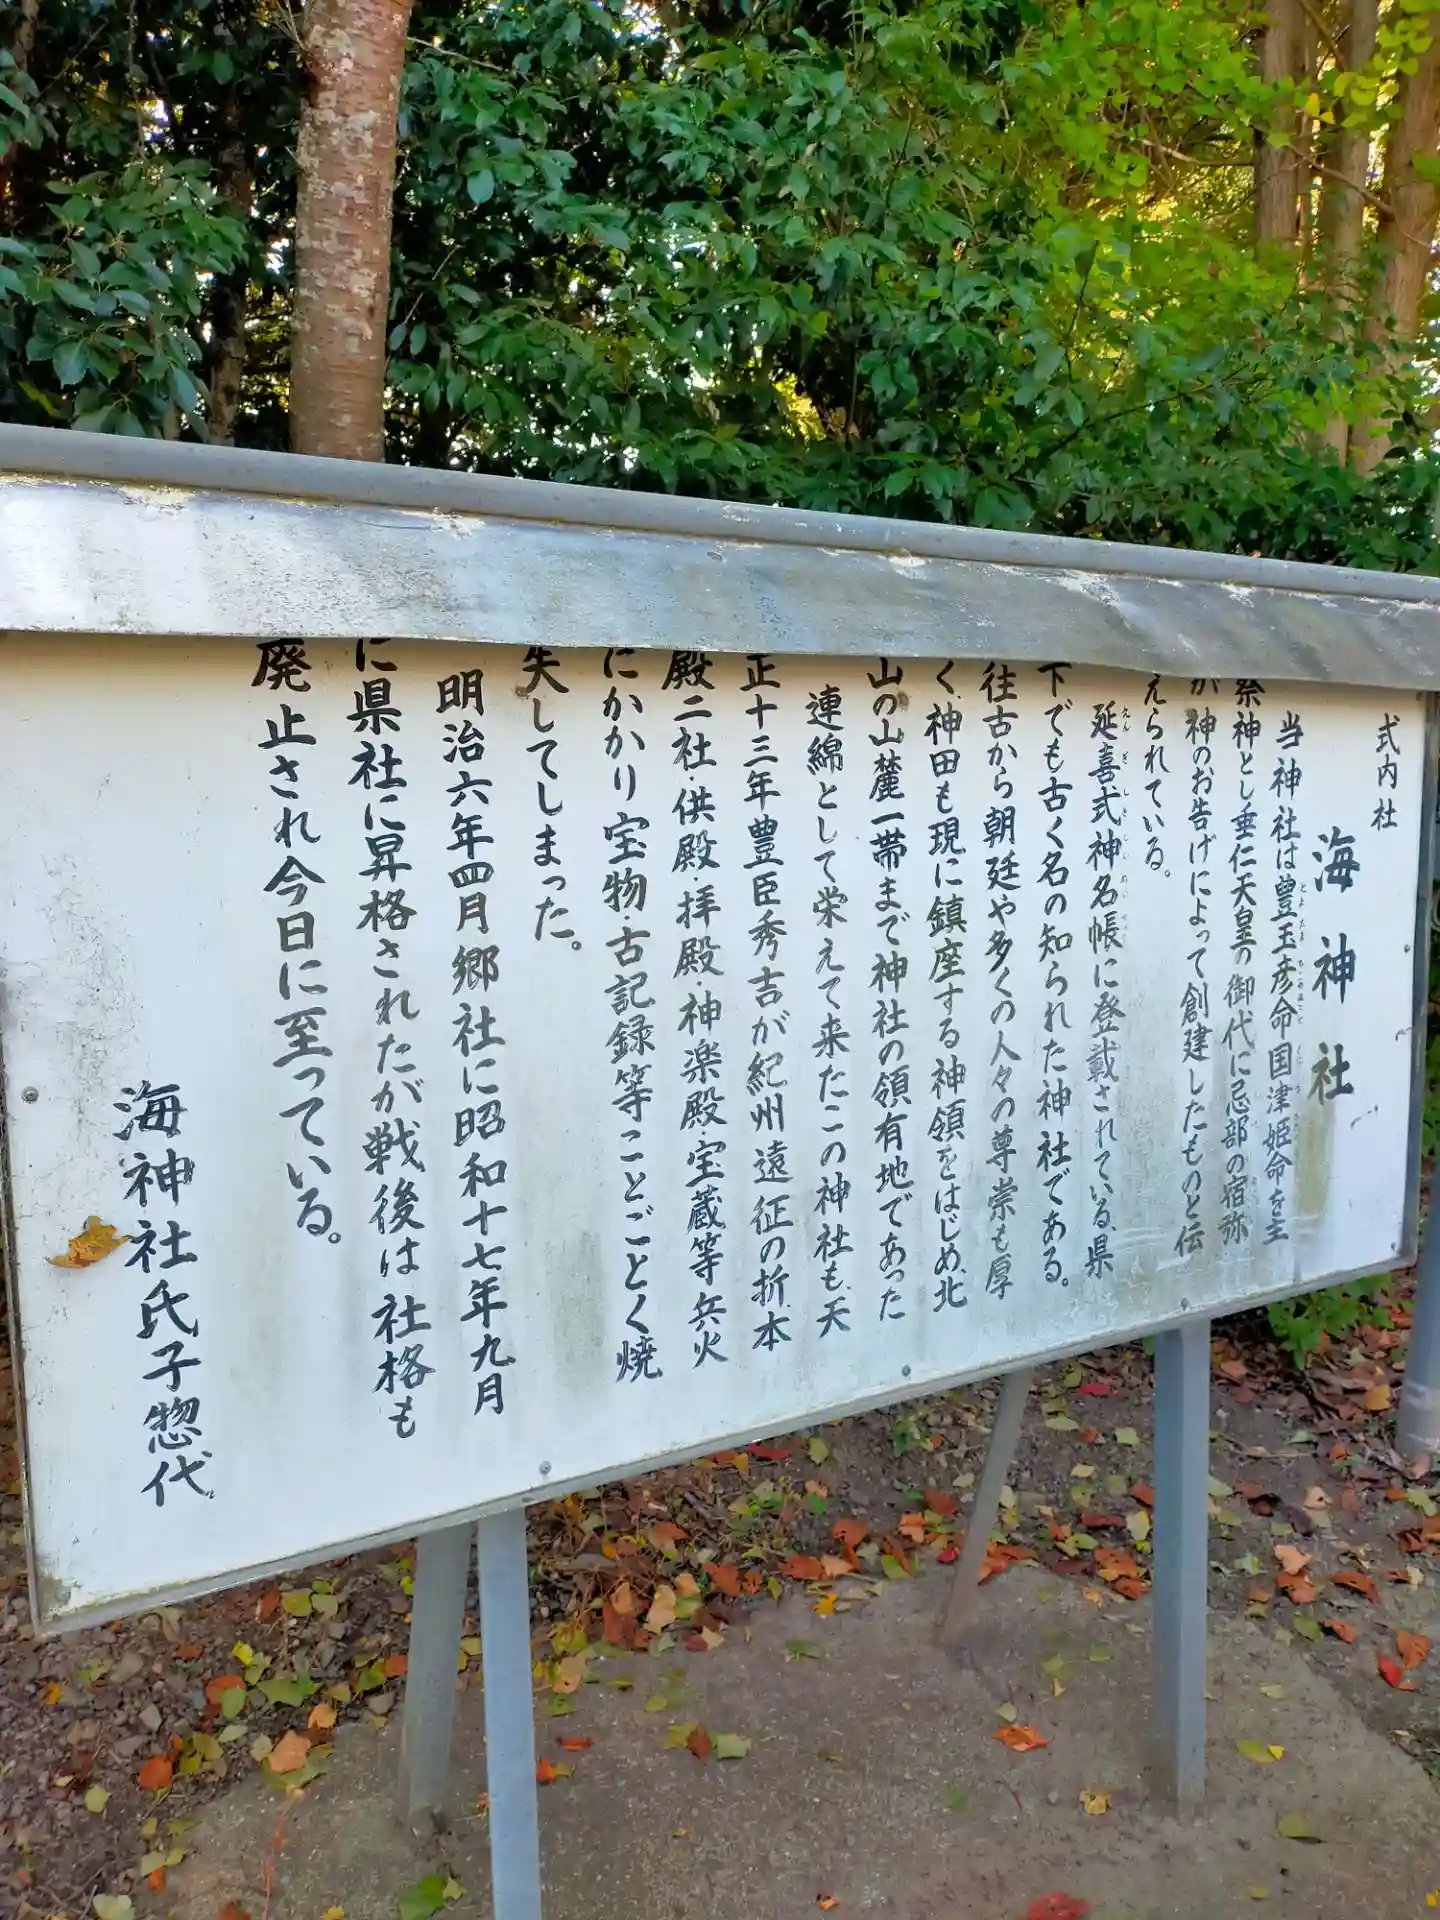 式内社
海神社
当神社は豊玉彦命国津姫命を主
祭神とし垂仁天皇の御代に忌部の宿弥
が神のお告げによって創建したものと伝
えられている。
延喜式神名帳に登載されている、県
下でも古く名の知られた神社である。
往古から朝廷や多くの人々の尊崇も厚
く、神田も現に鎮座する神領をはじめ、北
山の山麓一帯まで神社の領有地であった
連綿として栄えて来たこの神社も、天
正十三年豊臣秀吉が紀州遠征の折、本
殿二社・供殿・拝殿・神楽殿・宝蔵等兵火
にかかり宝物・古記録等ことごとく焼
失してしまった。
明治六年四月郷社に昭和十七年九月
に県社に昇格されたが戦後は社格も
廃止され今日に至っている。
海神社氏子惣代